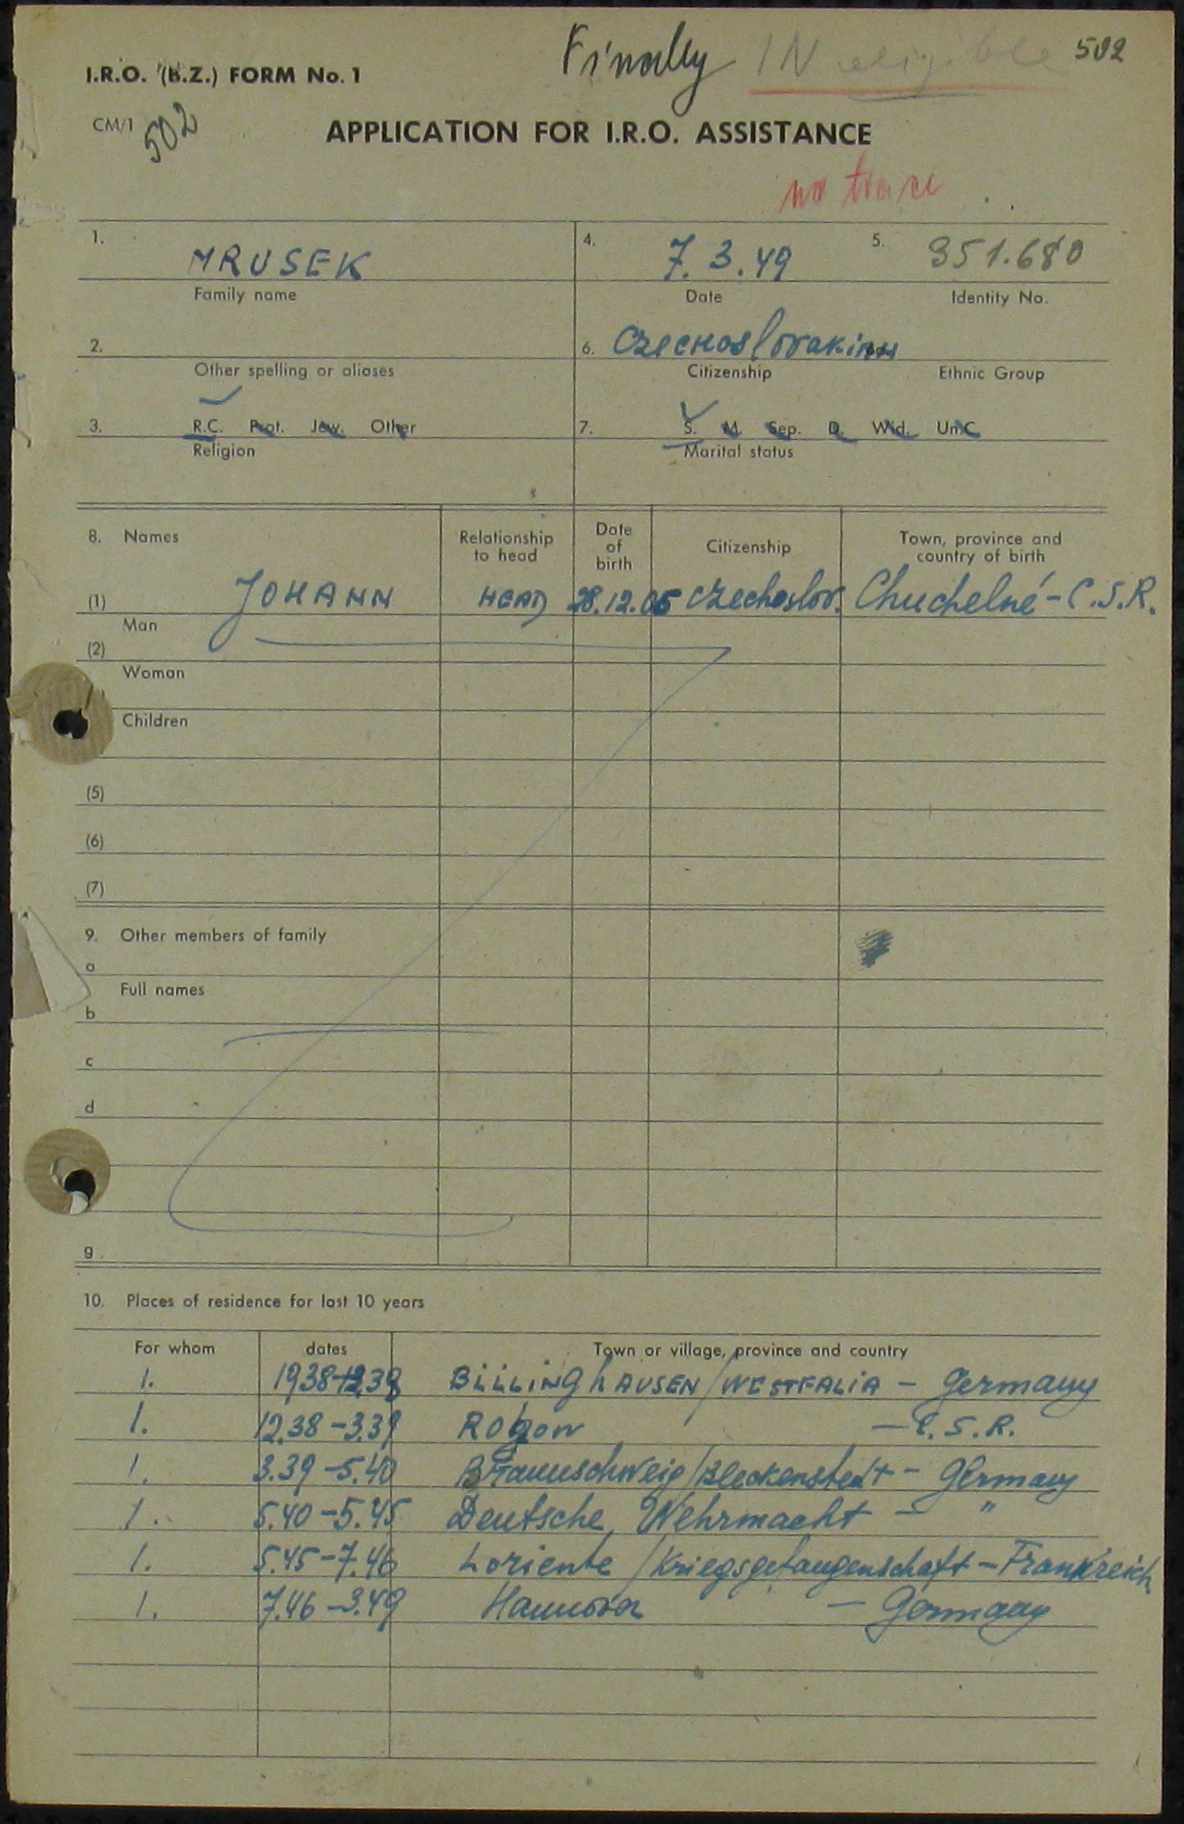 Finally INeligible 502
I.R.O. (B.Z.) FORM No. 1
CM/1 502
APPLICATION FOR I.R.O. ASSISTANCE
no trace
1. MRUSEK 4. 7.3.49 5. 351.680
Family name Date Identity No.
2. 6. Czechoslovakian
Other spelling or aliases Citizenship Ethnic Group
3. R.C. Prot. Jew. Other 7. S. M. Sep. D. Wid. Un.C.
Religion Marital status
8. Names Relationship to head Date of birth Citizenship Town, province and country of birth
(1) JOHANN HEAD 28.12.05 czechoslov. Chuchelné - C.S.R.
Man
(2)
Woman
Children
(5)
(6)
(7)
9. Other members of family
a
Full names
b
c
d
g
10. Places of residence for last 10 years
For whom dates Town or village, province and country
1. 1938-12.38 BILLINghAUSEN/WESTFALIA - Germany
1. 12.38-3.39 Rogow - C.S.R.
1. 3.39-5.40 Braunschweig/Bleckenstedt - Germany
1. 5.40-5.45 Deutsche Wehrmacht - "
1. 5.45-7.46 Loriente/Kriegsgefangenschaft - Frankreich
1. 7.46-3.49 Hannover - Germany